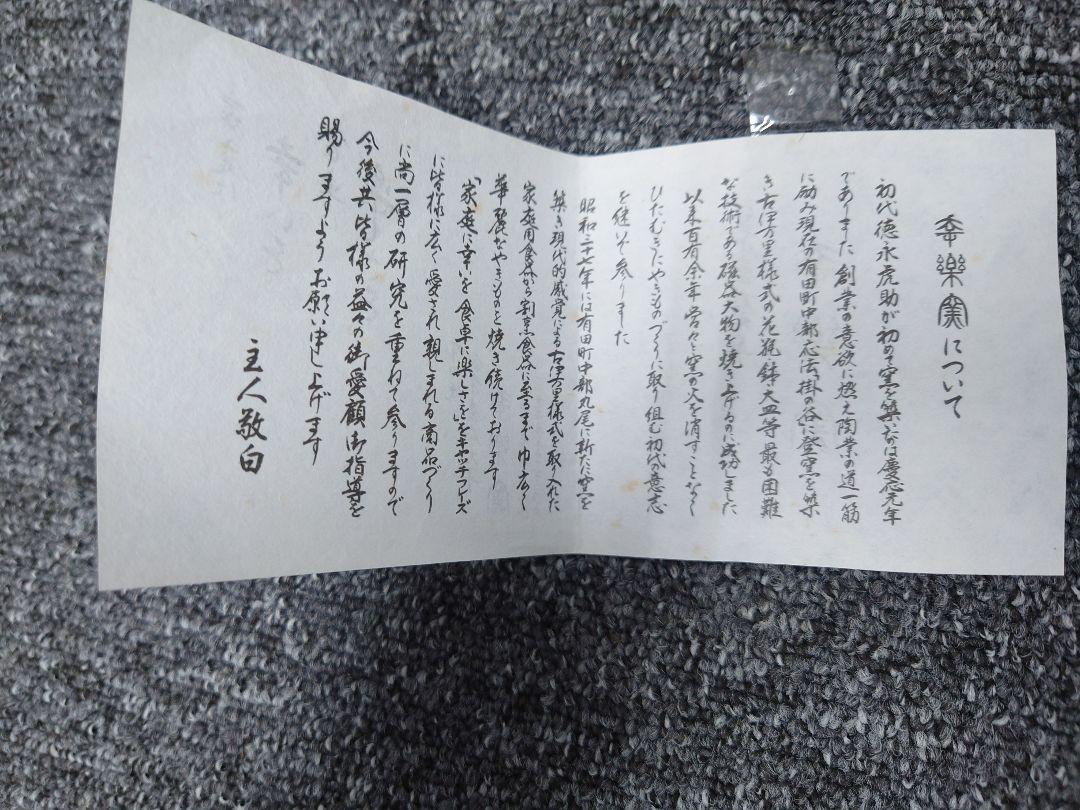 幸樂窯について
初代徳永虎助が初めて窯を築いたのは慶応元年
でありました 創業の意欲に燃え陶業の道一筋
に励み現在の有田町中部応法掛の谷に登窯を築
き古伊万里様式の花瓶・鉢・大皿等最も困難
な技術である磁器大物を焼き上げるのに成功しました
以来百有余年営々と窯の火を消すことなく
ひたむきにやきものづくりに取り組む初代の意志
を継いで参りました
昭和三十七年には有田町中部丸尾に新たに窯を
築き現代的感覚による古伊万里様式を取り入れた
家庭用食器から割烹食器に至るまで巾広く
華麗なやきものを焼き続けております
「家庭に幸いを食卓に楽しさを」をキャッチフレーズ
に皆様に広く愛され親しまれる商品づくり
に尚一層の研究を重ねて参りますので
今後共皆様の益々の御愛顧御指導を
賜りますようお願い申し上げます
主人敬白